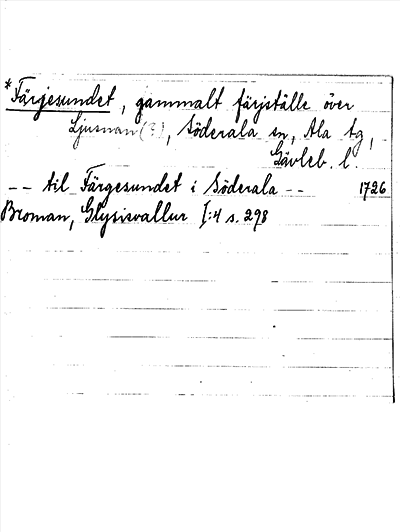 *Färjesundet, gammalt färjställe över
Ljusnan (?), Söderala sn, Ala tg,
Gävleb. l.
-- til Färgesundet i Söderala -- 1726
Broman, Glysisvallur I:4 s. 298